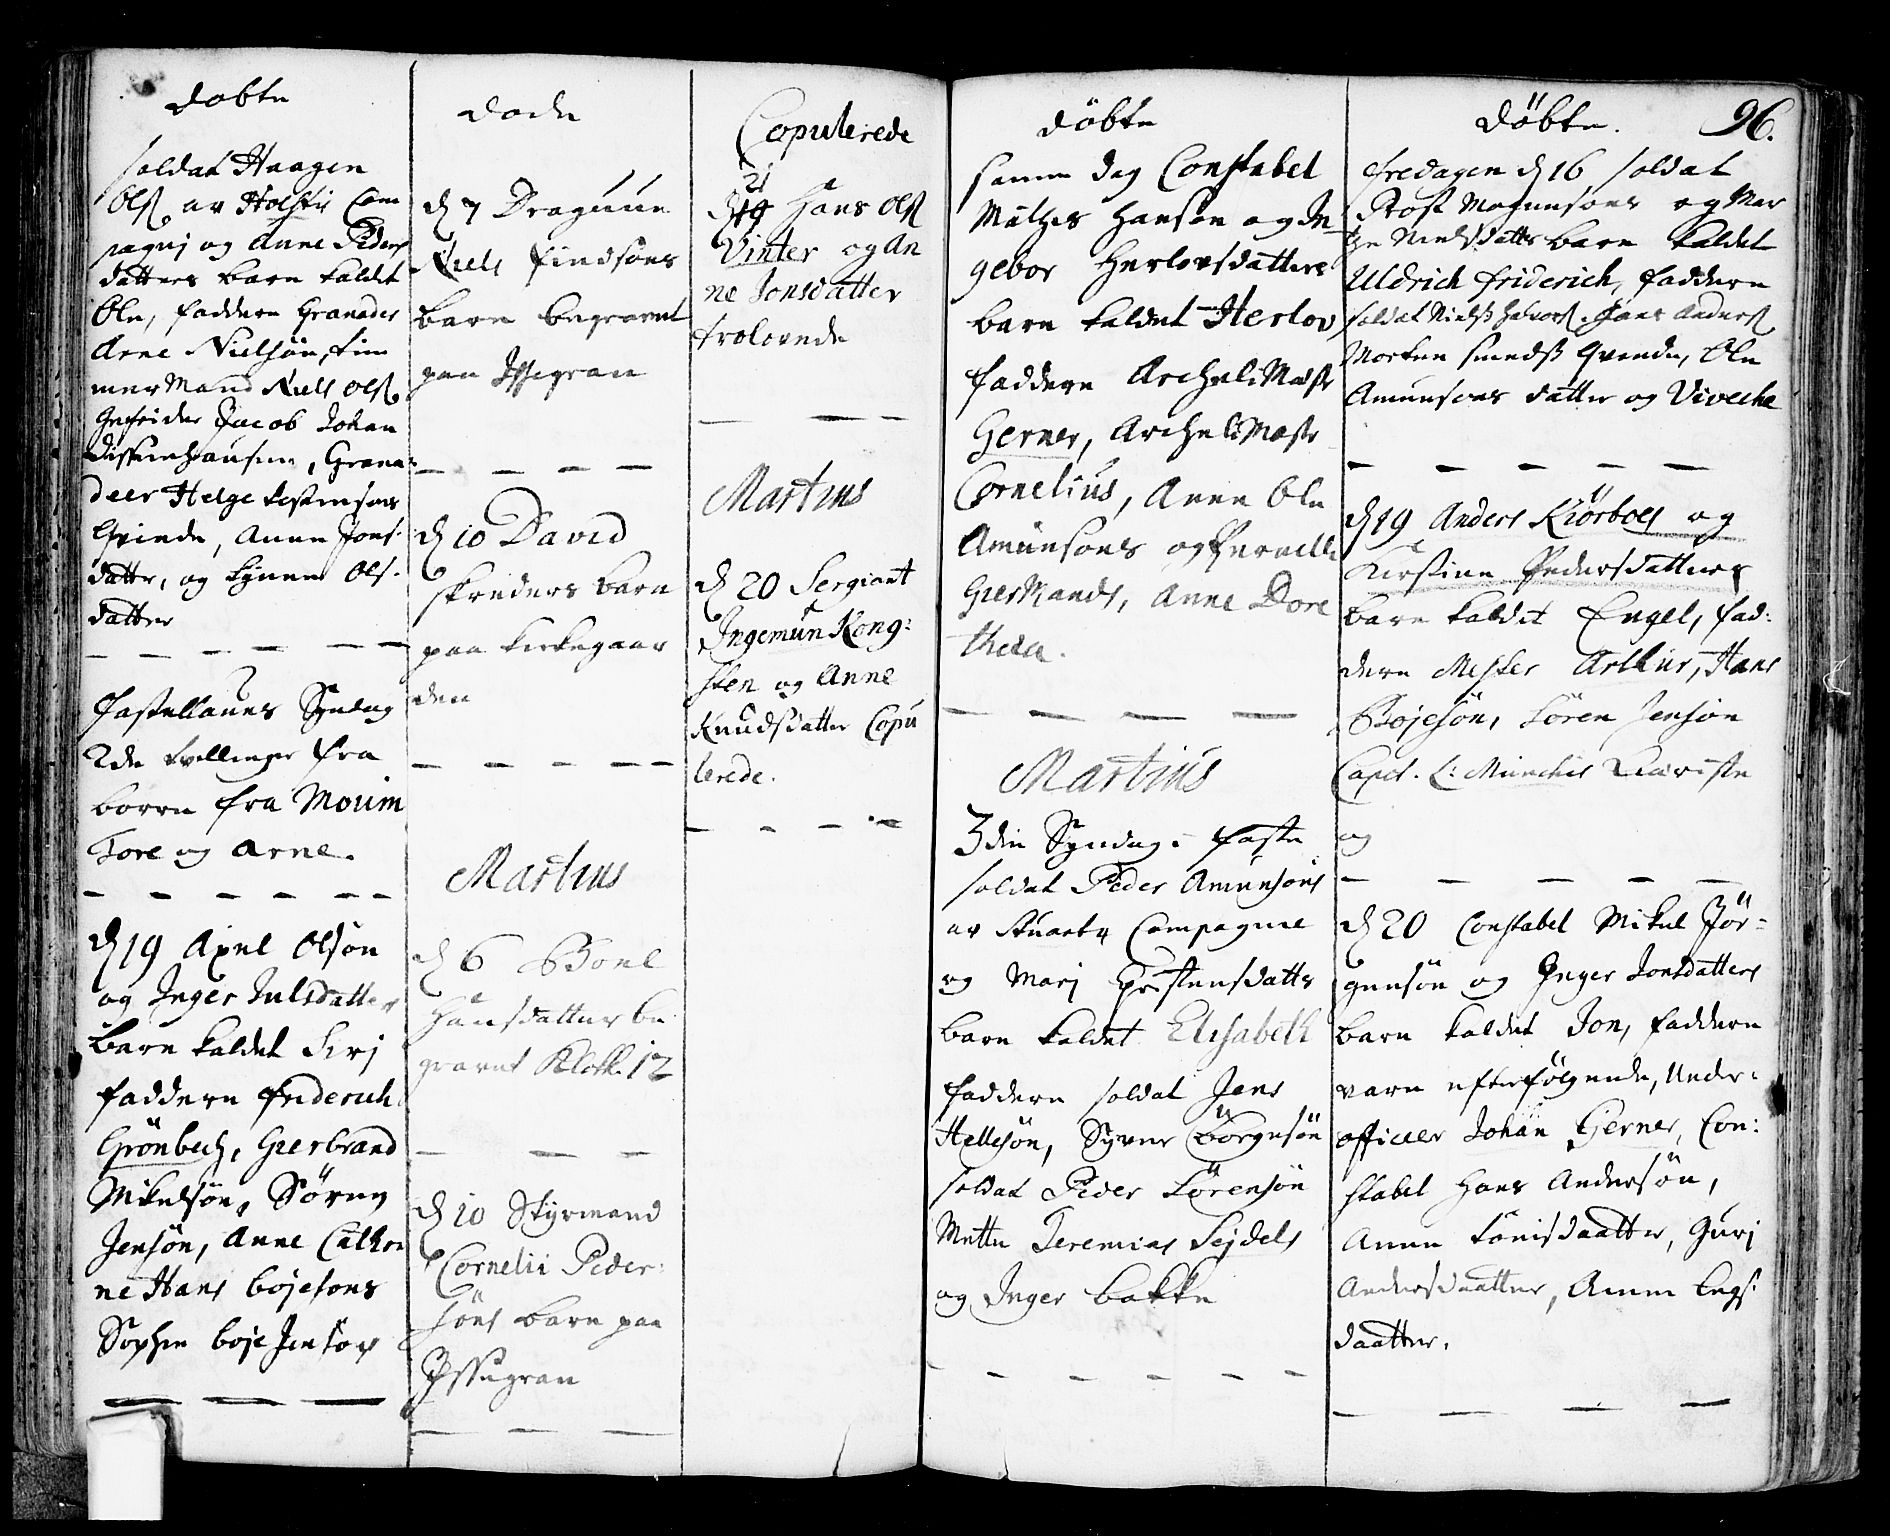 Döbte
soldat Haagen
Ols. av Holstis Com
pagnj og Anne Peders
datters barn kaldet
Ole, faddere Granader
Arne Nielsön, tim
mermand Niels Ols.
Gefrider Jacob Johan
Grana:
deer Helge
Qvinde, Anne Jons
datter, og Ols.
datter
Castellanes Syndag
2de tvillinger fra
borre fra Moum
Tore og Arne.
d 19 Axel Olsön
og Inger Julsdatter
barn kaldet Sirj
faddere Friderich
Grönbech, Gierbrand
Mikelsön, Sören
Jensön, Anne Cathri
ne Hans böjesons
Sophie boje Jensöns
Döde
d 7 Dragoun
Niels findsöns
barn begravet
paa Issegran
d 10 David
skreders barn
paa kirkegaar
den
Martius
d 6 Boel
Hansdatter be
gravet Klokk. 12
d 10 Styrmand
Cornelii Peder:
söns barn paa
Issegran
Copulerede
21
d 19 Hans Ols.
Vinter og An
ne Jonsdatter
trolovede
Martius
d 20 Sergiant
Ingemun Kong:
sten og Anne
Knudsdatter Copu
lerede.
Döbte
samme dag Constabel
Mathis Hansön og In
gebor Herlovsdatters
barn kaldet Herlov
faddere Archeli Mestr
Gerner, Archeli Mestr
Cornelius, Anne Ole
Amunsöns og Pernelle
Anne Dore
thea.
Martius
3die Syndag i faste
soldat Peder Amunsöns
av Stuarts Compagnie
og Marj Christensdatters
barn kaldet Elisabeth
faddere soldat Jens
Hellesön, Syver Börgesön
soldat Peder Sörensön
Mette Jeremias Sejdels
og Inger bakke
Döbte. 96.
fredagen d 16 soldat
Rost Mogensöns og Mar
the Nielsdatters barn kaldet
Uldrich friderich, faddere
soldat Niels Halvors. Hans Anders.
Morten smeds Qvinde, Ole
Amunsöns datter og Viveche
d 19 Anders Kiörboes og
Kirstine Pedersdatters
barn kaldet Engel, fad:
dere Mester Arthur, Hans
Bojesön, Sören Jensön
Capt. L: Munchis
og
d 20 Constabel Mikel Jör-
gensön og Inger Jonsdatters
barn kaldet Jon, faddere
vare efterfölgende, Under-
officeer Johan Gerner, Con:
stabel Hans Andersön,
Anne Tönisdaatter, Gurj
Andersdaatter, Anne
daatter.